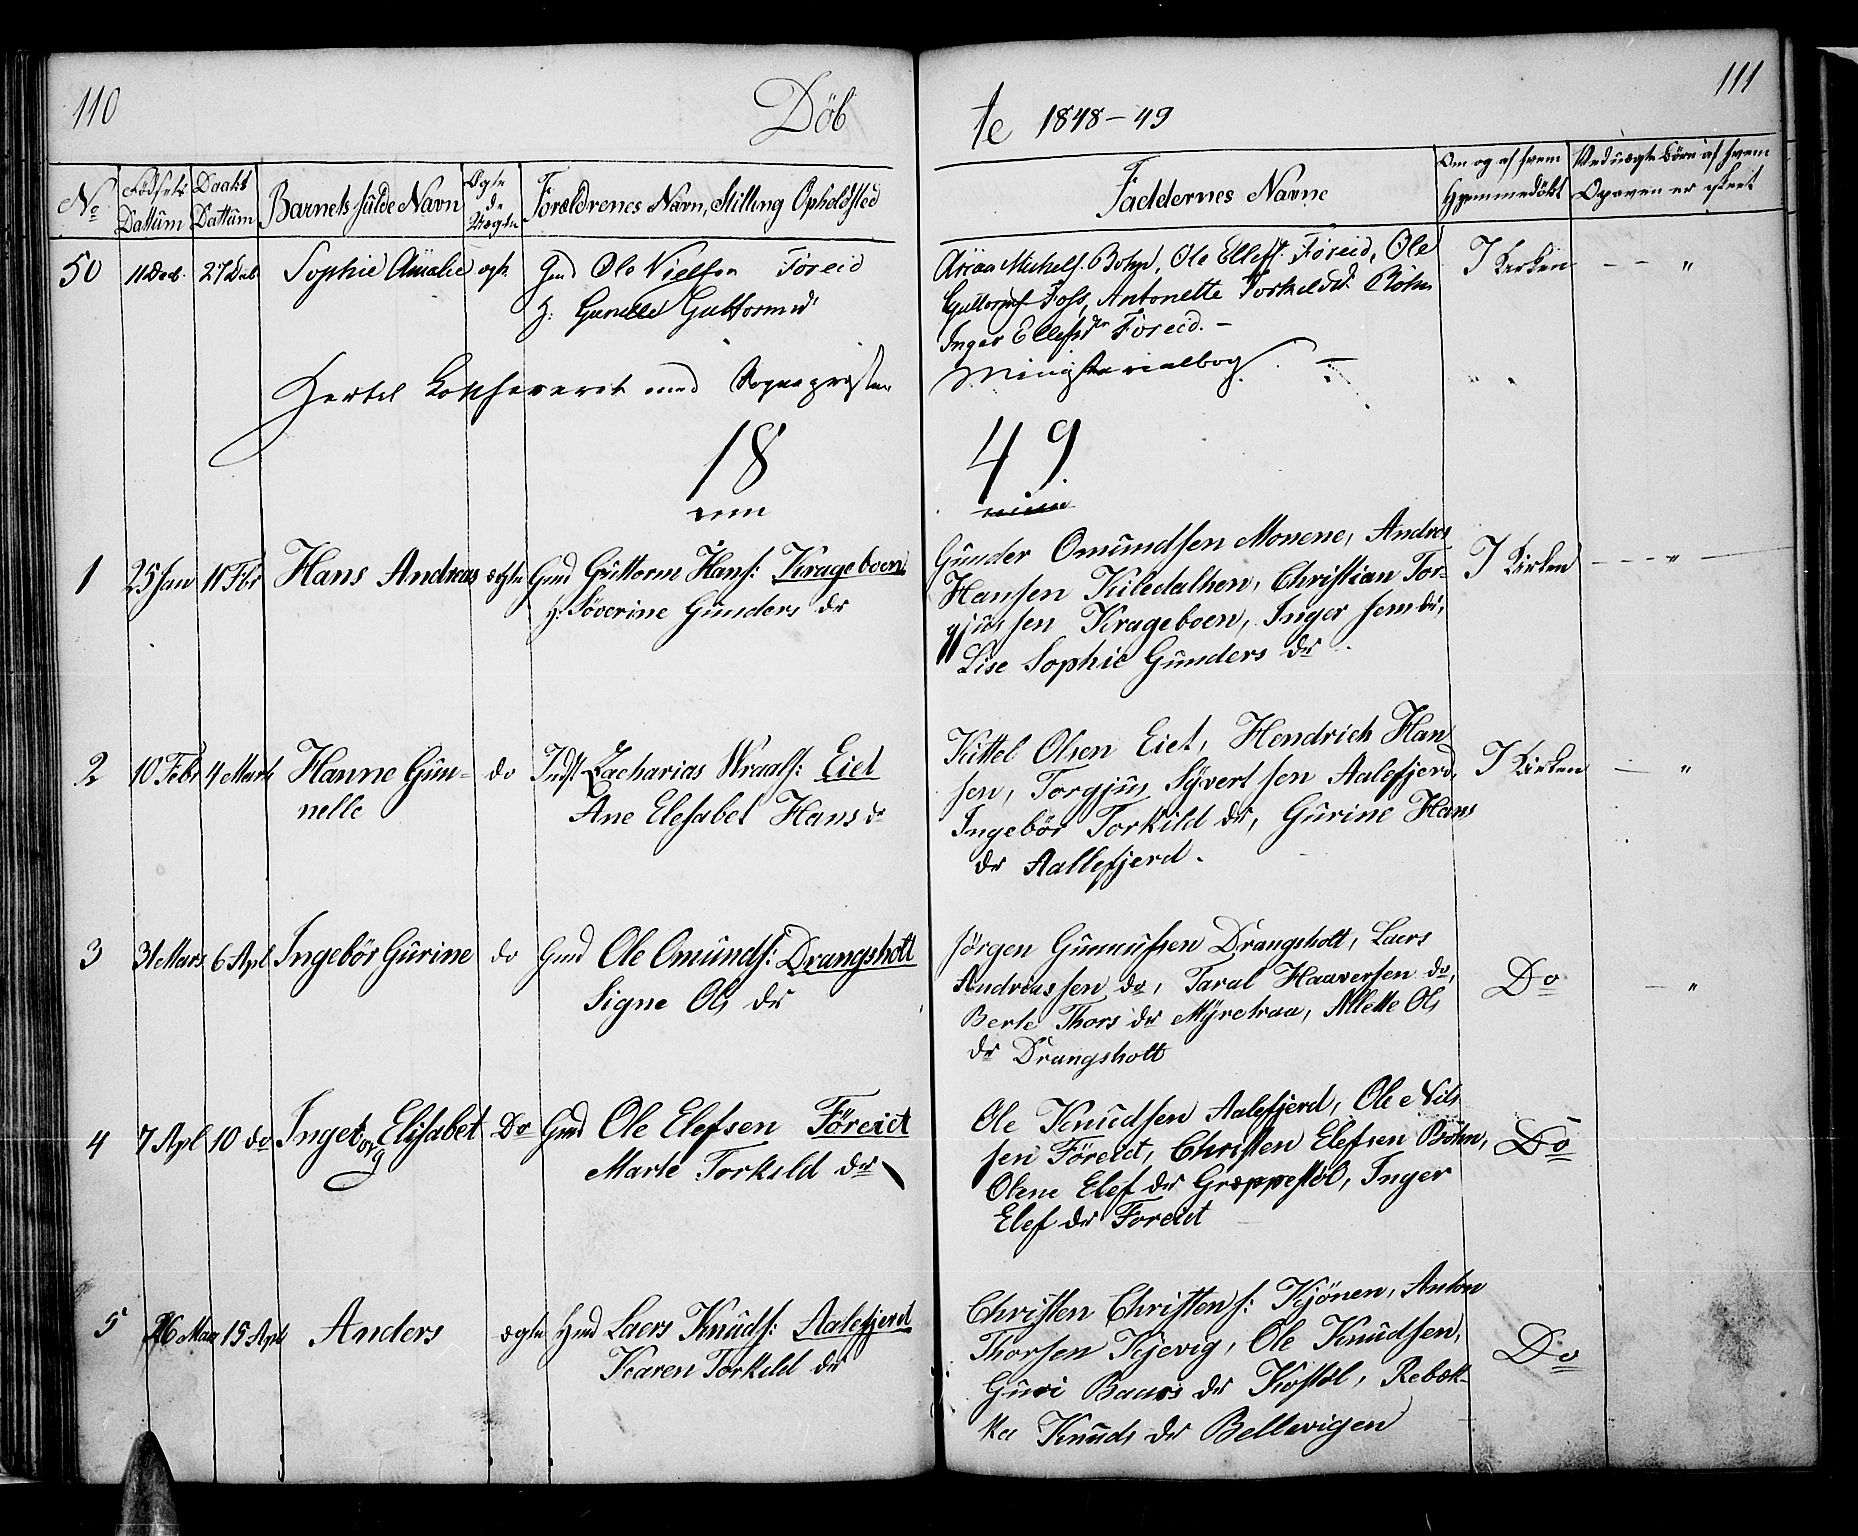 110
Döb
te 1848–49
111
No
Födsels Dattum
Daabs Dattum
Barnets fulde Navn
Ægte de Uægte
Forældrenes Navn, Stilling Opholdsted
Faddernes Navne
Om og af hvem Hjemmedöbt
Ved uægte Börn af hvem Opgaven er skeet
50 11 Dec. 27 Deb Sophie Amalie ægte Gmd Ole Nielsen Föreid
H: Gunelle Guttormsd
Michels. Bohn, Ole Ellefs. Föreid, Ole
Guttorms Foss, Antonette Torkeldsd Böhn
Inger Ellefsdtr Föreid. –
I Kirken – – "
Hertil Konfereret med Sognepræstens
Ministerialbog.
18 49
1 25 Jan 11 Fbr Hans Andreas ægte Gmd Guttorm Hans: Krageboen
H: Söverine Gunders dr
Gunder Omundsen Monene, Andres
Hansen Kiledalhen, Christian Tor-
gjussen Krageboen, Inger dr,
Lise Sophie Gunders dr
I Kirken – – – " –
2 10 Febr 4 Marts Hanne Gun-
nelle
do Indst Zacharias Wraals: Eiet
Ane Elesabet Hans dr
Kittel Olsen Eiet, Hendrich Han
sen, Torgjus Syvertsen Aalefjerd,
Ingebör Torkild dr, Gurine Hans
dr Aallefjerd.
I Kirken – "
3 31 Mars 6 Apl Ingebör Gurine do Gmd Ole Omunds: Drangsholt
Signe Ols dr
Jörgen Gunnufsen Drangsholt, Laers
Andreassen do, Taral Haaversen do,
Berte Thors dr Myretraa, Allette Ols
dr Drangsholt
Do – "
4 7 Apl 10 do Ingeborg Elisabet Do Gmd Ole Elefsen Föreidt
Marte Torkild dr
Ole Knudsen Aalefjerd, Ole Nils
sen Föreidt, Christen Elefsen Böhn,
Olene Elef dr Græppestöl, Inger
Elef dr Foreidt
Do
5 26 Mars 15 Apl Anders ægte Hmd Laers Knuds: Aalefjerd
Karen Torkild dr
Christen Christens: Kjönen, Anton
Thorsen Kjevig, Ole Knudsen,
Guri Baars dr Kostöl, Rebæk-
ka Knuds dr Bellevigen
Do